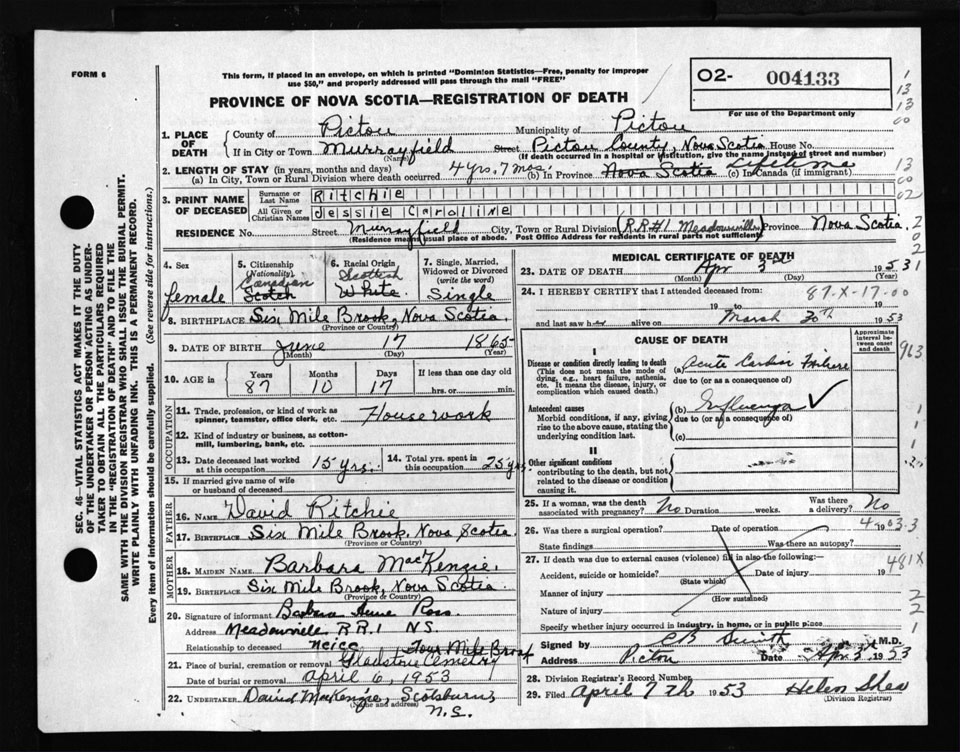 FORM 6
This form, if placed in an envelope, on which is printed "Dominion Statistics—Free, penalty for improper use $50," and properly addressed will pass through the mail "FREE"
02- 004133
For use of the Department only
PROVINCE OF NOVA SCOTIA—REGISTRATION OF DEATH
1. PLACE OF DEATH
County of Pictou Municipality of Pictou
If in City or Town Murrayfield Street Pictou County, Nova Scotia House No.
(Name) (If death occurred in a hospital or institution, give the name instead of street and number)
2. LENGTH OF STAY (in years, months and days)
(a) In City, Town or Rural Division where death occurred 4 yrs. 7 mos (b) In Province Nova Scotia Lifetime (c) In Canada (if immigrant)
3. PRINT NAME OF DECEASED
Surname or Last Name Ritchie
All Given or Christian Names Jessie Caroline
RESIDENCE No. Street Murrayfield City, Town or Rural Division (R.R.#1 Meadowville) Province Nova Scotia
(Residence means usual place of abode. Post Office Address for residents in rural parts not sufficient)
4. Sex female
5. Citizenship (Nationality) Canadian Scotch
6. Racial Origin Scottish White
7. Single, Married, Widowed or Divorced (write the word) Single
8. BIRTHPLACE Six Mile Brook, Nova Scotia
(Province or Country)
9. DATE OF BIRTH June 17 1865
(Month) (Day) (Year)
10. AGE in Years Months Days If less than one day
87 10 17 hrs. or min.
OCCUPATION
11. Trade, profession, or kind of work as spinner, teamster, office clerk, etc. Housework
12. Kind of industry or business, as cotton-mill, lumbering, bank, etc.
13. Date deceased last worked at this occupation 15 yrs.
14. Total yrs. spent in this occupation 25 yrs.
15. If married give name of wife or husband of deceased
FATHER
16. NAME David Ritchie
17. BIRTHPLACE Six Mile Brook, Nova Scotia
(Province or Country)
MOTHER
18. MAIDEN NAME Barbara MacKenzie
19. BIRTHPLACE Six Mile Brook, Nova Scotia
(Province or Country)
20. Signature of informant Barbara Anne Ross
Address Meadowville R.R.1 N.S.
Relationship to deceased neice
21. Place of burial, cremation or removal Gladstone Cemetery Four Mile Brook
Date of burial or removal April 6, 1953
22. UNDERTAKER David MacKenzie, Scotsburn, N.S.
(Name and address)
MEDICAL CERTIFICATE OF DEATH
23. DATE OF DEATH Apr 3rd 1953
(Month) (Day) (Year)
24. I HEREBY CERTIFY that I attended deceased from: 87-X-17-00
19 to 19
and last saw her alive on March 30th 1953
CAUSE OF DEATH
Approximate interval between onset and death
I
Disease or condition directly leading to death (This does not mean the mode of dying, e.g., heart failure, asthenia, etc. It means the disease, injury, or complication which caused death.)
(a) Acute Cardiac Failure
due to (or as a consequence of)
Antecedent causes
Morbid conditions, if any, giving rise to the above cause, stating the underlying condition last.
(b) Influenza
due to (or as a consequence of)
(c)
II
Other significant conditions contributing to the death, but not related to the disease or condition causing it.
25. If a woman, was the death associated with pregnancy? No Duration weeks. Was there a delivery? No
26. Was there a surgical operation? Date of operation 19
State findings Was there an autopsy?
27. If death was due to external causes (violence) fill in also the following:—
Accident, suicide or homicide? Date of injury 19
(State which)
Manner of injury
(How sustained)
Nature of injury
Specify whether injury occurred in industry, in home, or in public place
Signed by C B Smith M.D.
Address Pictou Date Apr. 3rd 1953
28. Division Registrar's Record Number
29. Filed April 7th 1953 Helen Shea
(Division Registrar)
SEC. 46—VITAL STATISTICS ACT MAKES IT THE DUTY OF THE UNDERTAKER OR PERSON ACTING AS UNDERTAKER TO OBTAIN ALL THE PARTICULARS REQUIRED IN THE "REGISTRATION OF DEATH" AND TO FILE THE SAME WITH THE DIVISION REGISTRAR WHO SHALL ISSUE THE BURIAL PERMIT.
WRITE PLAINLY WITH UNFADING INK. THIS IS A PERMANENT RECORD.
Every item of information should be carefully supplied. (See reverse side for instructions.)
963
481X